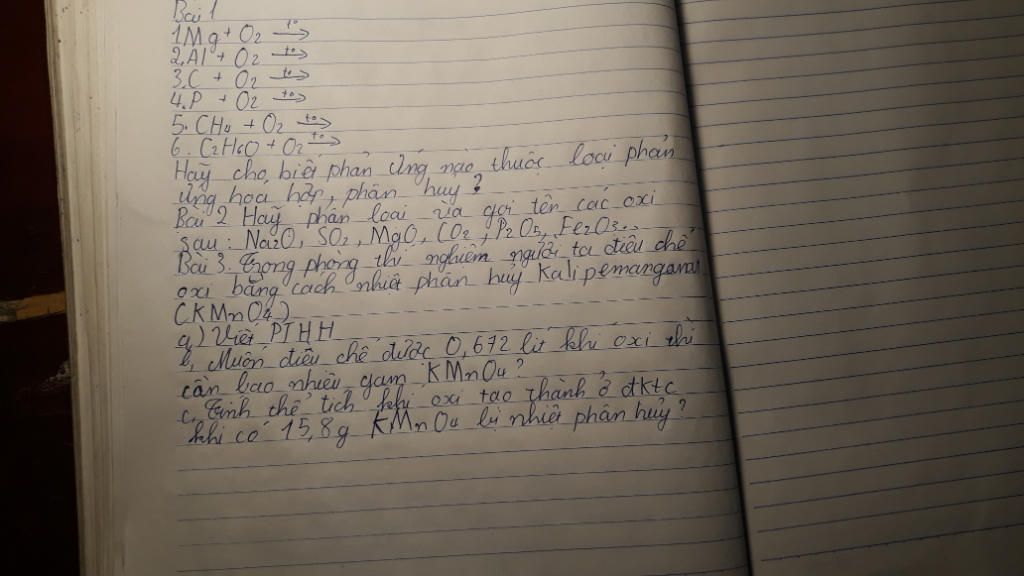 Bài 1
1.Mg + O2 t° →
2.Al + O2 t° →
3.C + O2 t° →
4.P + O2 t° →
5. CH4 + O2 t° →
6. C2H6O + O2 t° →
Hãy cho biết phản ứng nào thuộc loại phản
ứng hoá hợp, phân huỷ?
Bài 2 Hãy phân loại và gọi tên các oxi
sau: Na2O, SO2, MgO, CO2, P2O5, Fe2O3..
Bài 3. Trong phòng thí nghiệm người ta điều chế
oxi bằng cách nhiệt phân huỷ Kali pemanganat
(KMnO4)
a) Viết PTHH
b, Muốn điều chế được 0,672 lít khí oxi thì
cần bao nhiêu gam KMnO4?
c. Tính thể tích khí oxi tạo thành ở đktc
khi có 15,8g KMnO4 bị nhiệt phân huỷ?